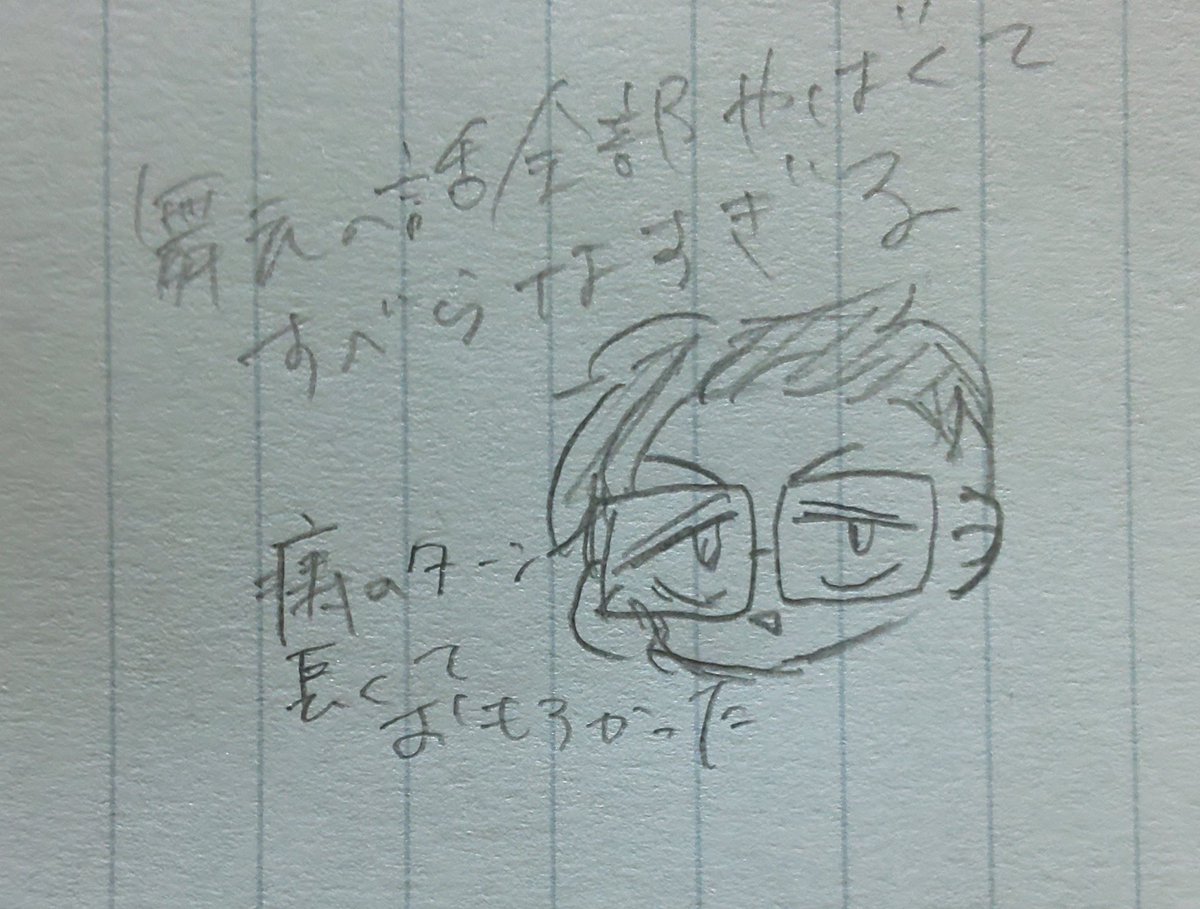 の話全部やばくて
すべらなすぎる
のターン
長くて
おもろかった